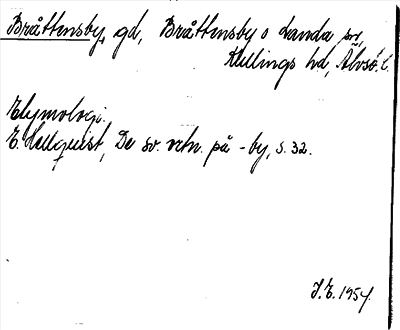 Bråttensby, gd, Bråttensby o Landa sn,
Kullings hd, Älvsb. l.
Etymologi.
E. Hellquist, De sv. ortn. på -by, s. 32.
J.E. 1954.